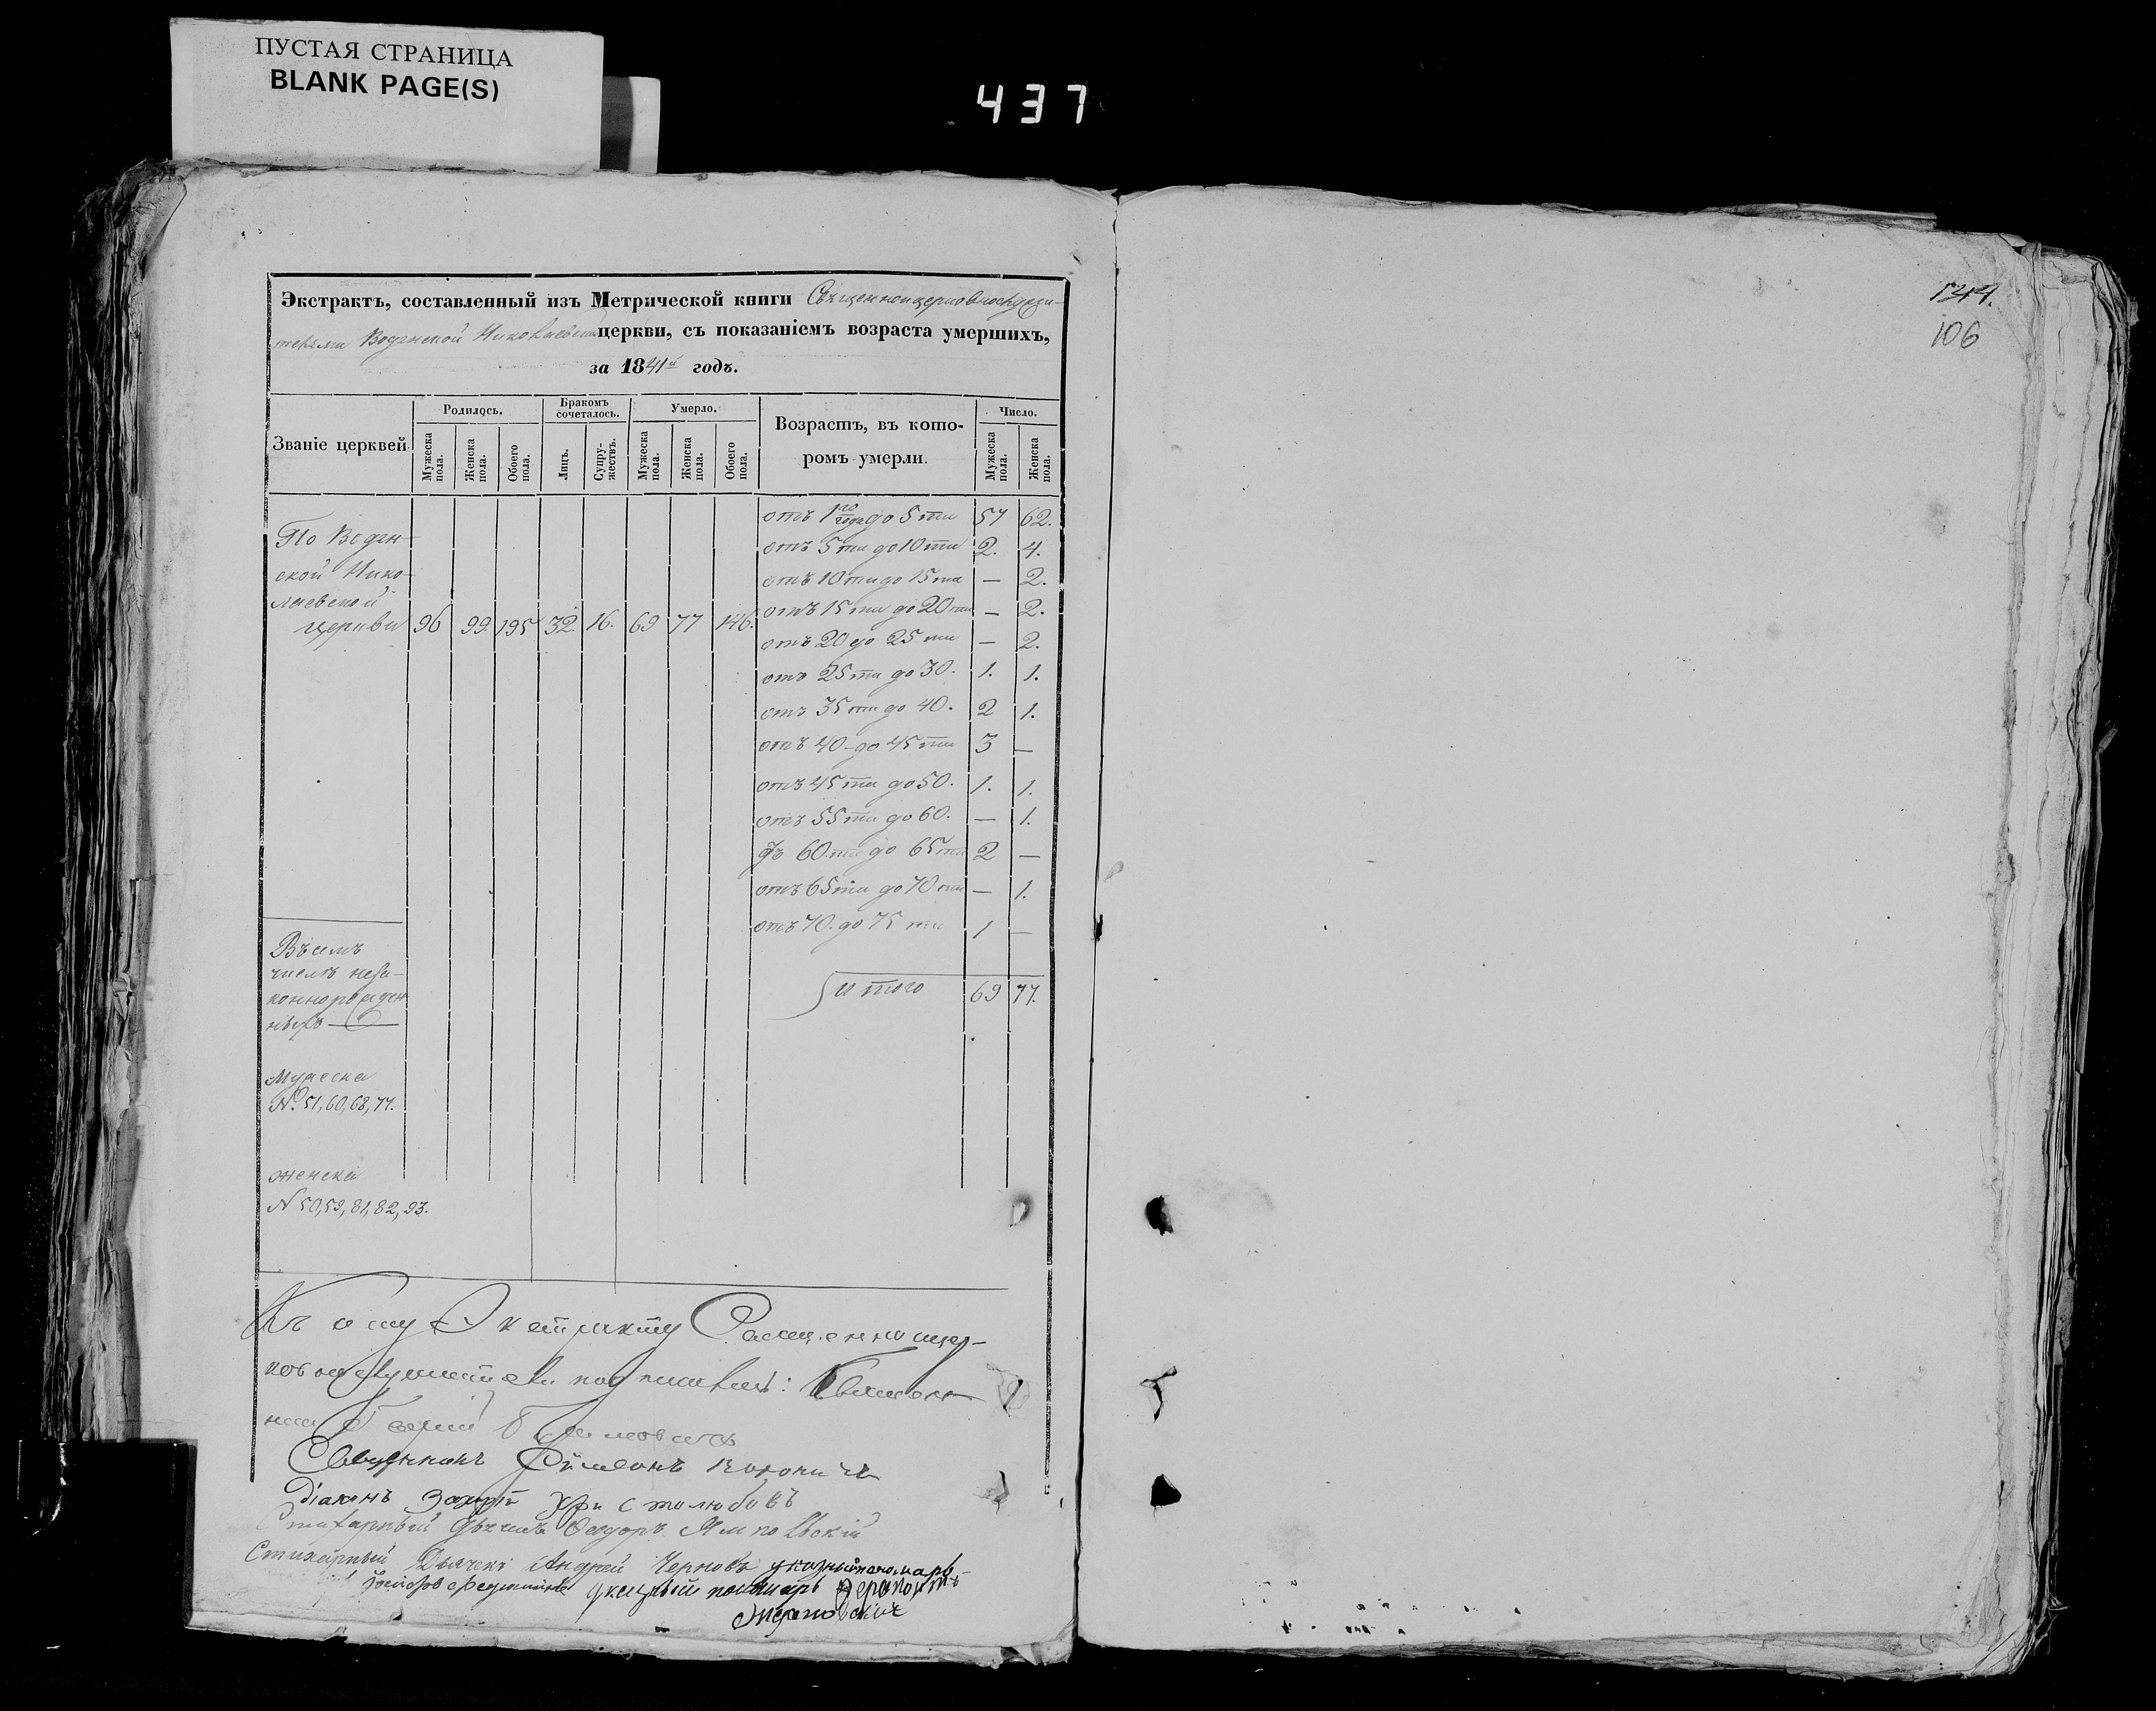 ПУСТАЯ СТРАНИЦА
BLANK PAGE(S)
437
Экстрактъ, составленный изъ Метрической книги Священноцерковнослужи-
телями Водянской Николаевской церкви, съ показаніемъ возраста умершихъ,
за 1841й годъ.
Званіе церквей
Родилось.
Бракомъ сочеталось.
Умерло.
Возрастъ, въ кото-
ромъ умерли.
Число.
Мужеска пола.
Женска пола.
Обоего пола.
Лицъ.
Супру-жествъ.
Мужеска пола.
Женска пола.
Обоего пола.
Мужеска пола.
Женска пола.
По Водян-
ской Нико-
лаевской
церкви 96 99. 195 32. 16. 69 77 146.
отъ 1го года до 5ти 57 62.
отъ 5ти до 10ти 2. 4.
отъ 10ти до 15ти — 2.
отъ 15ти до 20ти — 2.
отъ 20 до 25ти — 2.
отъ 25ти до 30. 1. 1.
отъ 35ти до 40. 2 1.
отъ 40 до 45ти 3 —
отъ 45ти до 50. 1. 1.
отъ 55ти до 60. — 1.
отъ 60ти до 65ти 2 —
отъ 65ти до 70ти — 1.
отъ 70. до 75ти 1 —
итого 69 77.
Въ семъ
числѣ неза-
коннорожден
ныхъ
Мужеска
№ 51, 60, 68, 77.
женска
N 50, 59, 81, 82, 93.
Къ сему Экстракту Священноцер-
ковнослужители подписались: Священ
Священникъ Сѵмеонъ
Діаконъ Захарій Христолюбовъ
Стихарный Дьячекъ Ѳеодоръ Ямпольскій
Стихарный Дьячекъ Андрей Черновъ указный пономарь
указный пономарь Ѳерапонтъ
144.
106